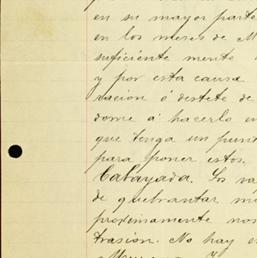 en su mayor parte
en los meses de M
suficiente mente
y por esta causa
vacion ó destete de
dome á hacerlo en
que tenga un punt
para poner estos.
Cabayada. Los va
de quebrantar mi
proximamente nos
trasión. No hay e